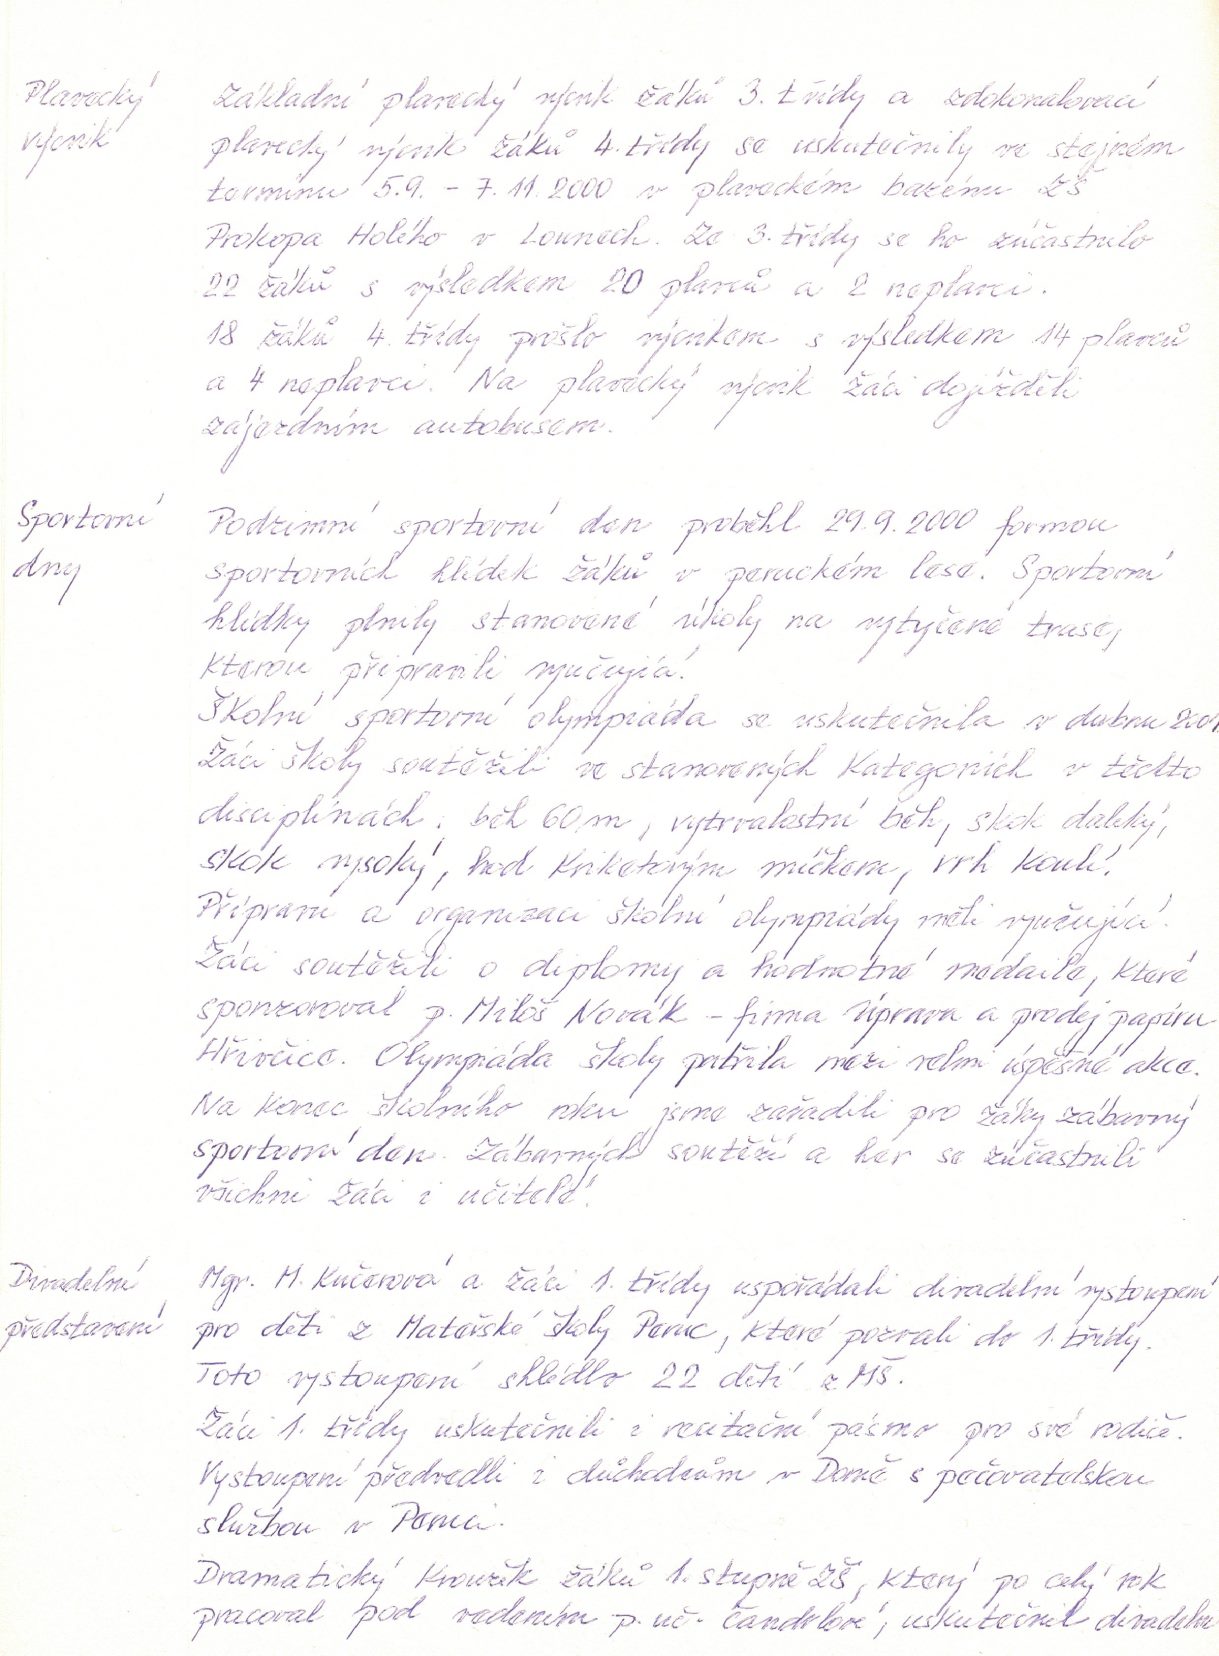 Plavecký
výcvik
Základní plavecký výcvik žáků 3. třídy a zdokonalovací
plavecký výcvik žáků 4. třídy se uskutečnily ve stejném
termínu 5.9. - 7.11.2000 v plaveckém bazénu ZŠ
Prokopa Holého v Lounech. Ze 3. třídy se ho zúčastnilo
22 žáků s výsledkem 20 plavců a 2 neplavci.
18 žáků 4. třídy prošlo výcvikem s výsledkem 14 plavců
a 4 neplavci. Na plavecký výcvik žáci dojížděli
zájezdním autobusem.
Sportovní
dny
Podzimní sportovní den proběhl 29.9.2000 formou
sportovních hlídek žáků v peruckém lese. Sportovní
hlídky plnily stanovené úkoly na vytyčené trase,
kterou připravili vyučující.
Školní sportovní olympiáda se uskutečnila v dubnu 2001.
Žáci školy soutěžili ve stanovených kategoriích v těchto
disciplínách: běh 60 m, vytrvalostní běh, skok daleký,
skok vysoký, hod kriketovým míčkem, vrh koulí.
Přípravu a organizaci školní olympiády měli vyučující.
Žáci soutěžili o diplomy a hodnotné medaile, které
sponzoroval p. Miloš Novák - firma Úprava a prodej papíru
Hřivčice. Olympiáda školy patřila mezi velmi úspěšné akce.
Na konec školního roku jsme zařadili pro žáky zábavný
sportovní den. Zábavných soutěží a her se zúčastnili
všichni žáci i učitelé.
Divadelní
představení
Mgr. M. Kučerová a žáci 1. třídy uspořádali divadelní vystoupení
pro děti z Mateřské školy Peruc, které pozvali do 1. třídy.
Toto vystoupení shlédlo 22 dětí z MŠ.
Žáci 1. třídy uskutečnili i recitační pásmo pro své rodiče.
Vystoupení předvedli i důchodcům v Domě s pečovatelskou
službou v Peruci.
Dramatický kroužek žáků 1. stupně ZŠ, který po celý rok
pracoval pod vedením p. uč. Čandrlové, uskutečnil divadelní